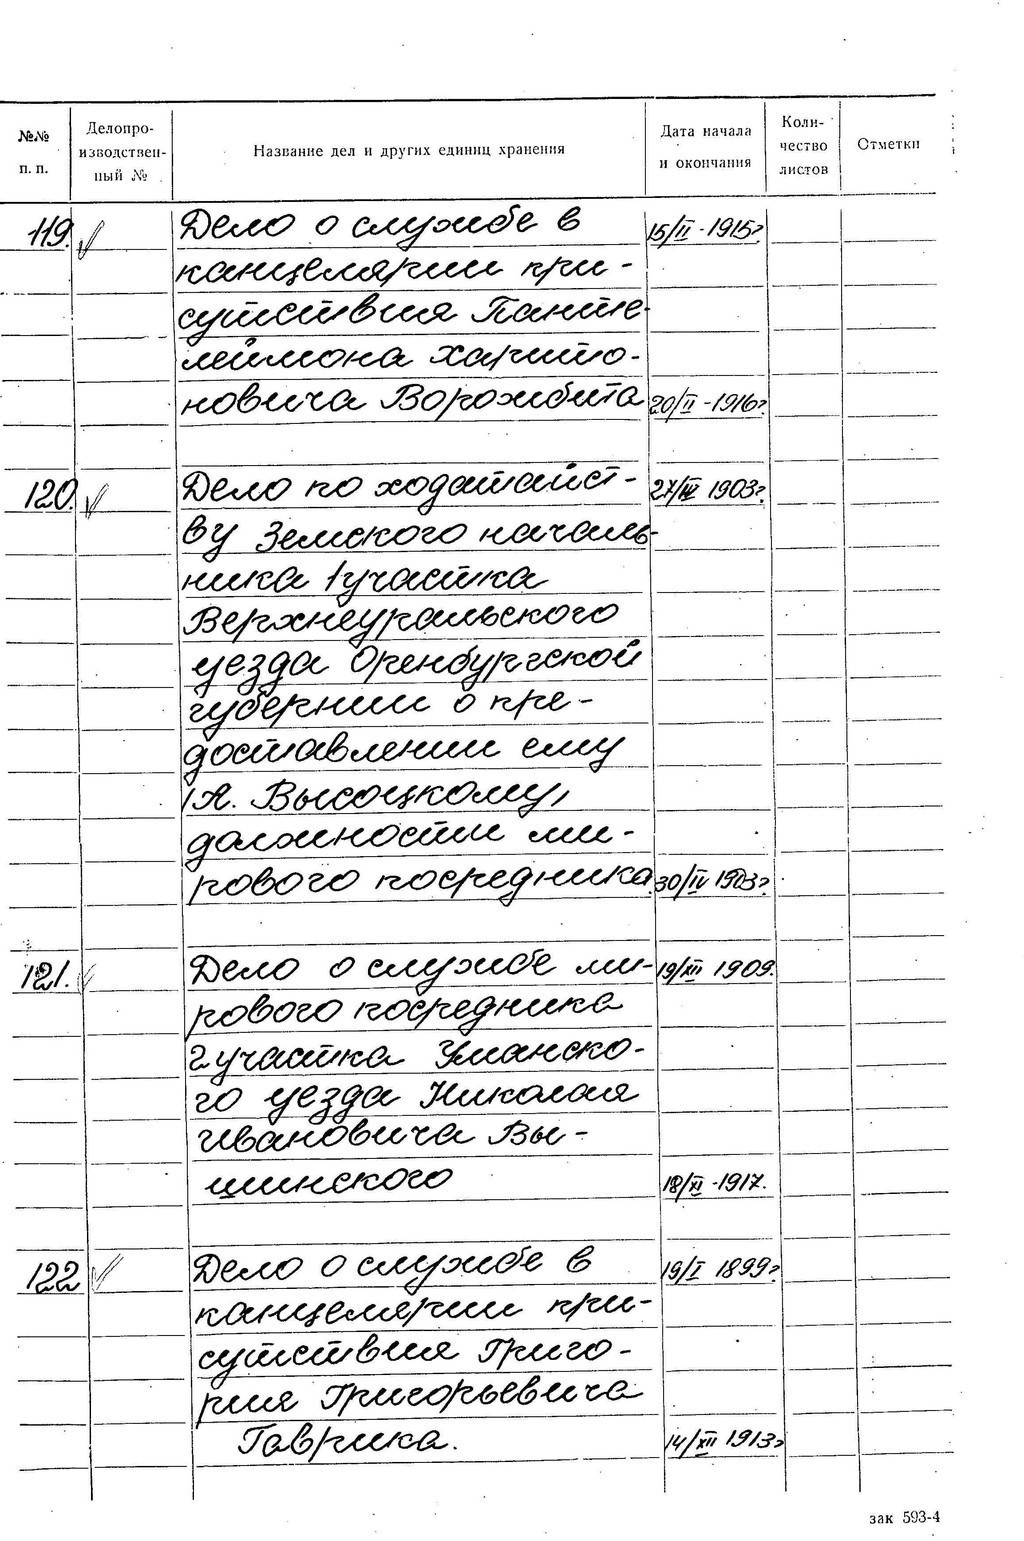 №№ п. п. Делопроизводственный № Название дел и других единиц хранения Дата начала и окончания Количество листов Отметки
119. Дело о службе в 15/II - 1915г.
канцелярии при-
сутствия Панте-
леймона Харито-
новича Ворожбита 20/II - 1916г.
120. Дело по ходатайст- 27/III 1903г.
ву Земского началь-
ника 1 участка
Верхнеуральского
уезда Оренбургской
губернии о пре-
доставлении ему
/А. Высоцкому/
должности ми-
рового посредника 30/IV 1903г.
121. Дело о службе ми- 19/XII 1909.
рового посредника
2 участка Уманско-
го уезда Николая
Ивановича Вы-
шинского 18/XI - 1917.
122 Дело о службе в 19/I 1899г.
канцелярии при-
сутствия Григо-
рия Григорьевича
Гаврика. 14/XII 1913г
зак 593-4